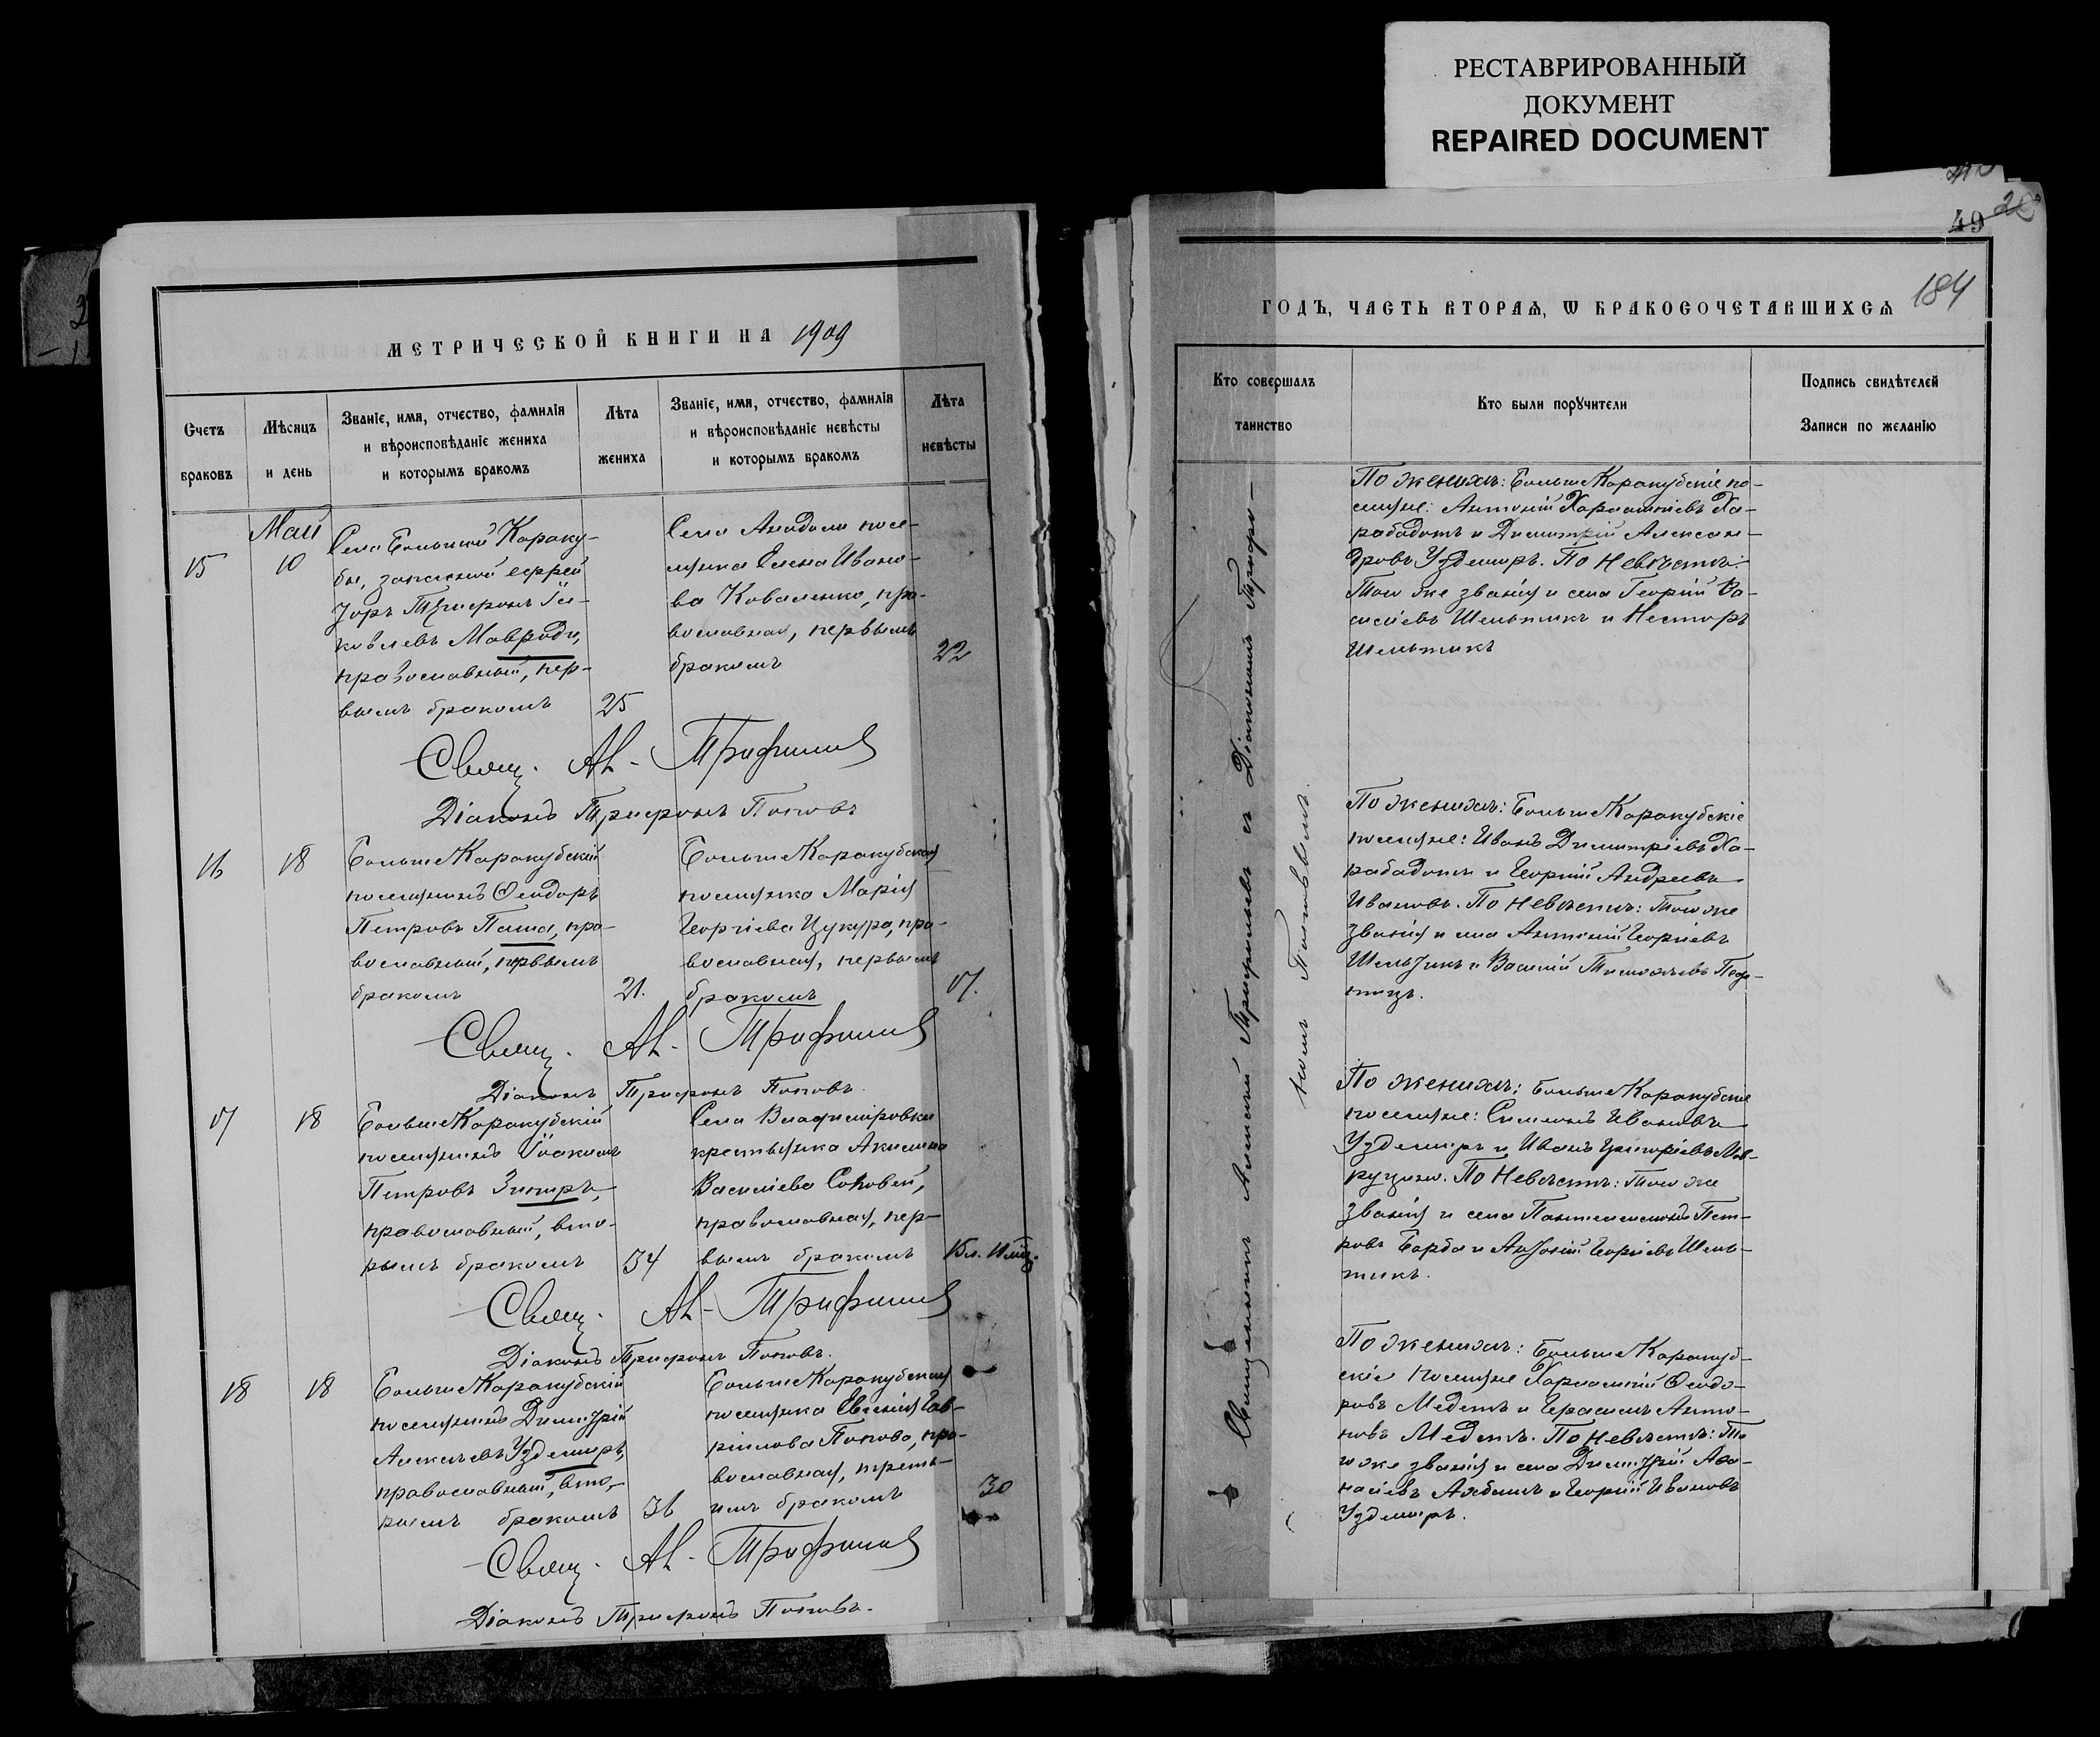 РЕСТАВРИРОВАННЫЙ
ДОКУМЕНТ
REPAIRED DOCUMENT
МЕТРИЧЕСКОЙ КНИГИ НА 1909
Счетъ
браковъ
Мѣсяцъ
и день
Званіе, имя, отчество, фамилія
и вѣроисповѣданіе жениха
и которымъ бракомъ
Лѣта
жениха
Званіе, имя, отчество, фамилія
и вѣроисповѣданіе невѣсты
и которымъ бракомъ
Лѣта
невѣсты
15
Май
10
Села Большой Караку-
бы, запасный ефрей
торъ Трифонъ Іа-
ковлевъ Мавроди,
православный, пер-
вымъ бракомъ
25
Села Анадоли посе-
лянка Елена Ивано-
ва Коваленко, пра-
вославная, первымъ
бракомъ
22
Свящ. Ал. Трифильев
Діаконъ Трифонъ Поповъ
16
18
БольшеКаракубскій
поселянинъ Ѳеодоръ
Петровъ Паша, пра-
вославный, первымъ
бракомъ
21.
БольшеКаракубская
поселянка Марія
Георгіева Цукура, пра-
вославная, первымъ
бракомъ
17.
Свящ. Ал. Трифильев
Діаконъ Трифонъ Поповъ.
17
18
БольшеКаракубскій
поселянинъ Іоакимъ
Петровъ
православный, вто-
рымъ бракомъ
34
Села Владимировки
крестьянка Акилина
Василіева Соловей,
православная, пер-
вымъ бракомъ
Свящ. Ал. Трифильев
Діаконъ Трифонъ Поповъ.
18
18
БольшеКаракубскій
поселянинъ Димитрій
Алексѣевъ Уздемиръ,
православный, вто-
рымъ бракомъ
36
БольшеКаракубская
поселянка Евгенія Гав-
ріилова Попова, пра-
вославная, треть-
имъ бракомъ
30
Свящ. Ал. Трифильев
Діаконъ Трифонъ Поповъ.
49
184
ГОДЪ, ЧАСТЬ ВТОРАЯ, Ѡ БРАКОСОЧЕТАВШИХСЯ
Кто совершалъ
таинство
Кто были порꙋчители
Подпись свидѣтелей
Записи по желанію
Священникъ Алексій Трифильевъ съ Діакономъ Трифо-
номъ Поповымъ.
По женихѣ: БольшеКаракубскіе по-
селяне: Антоній Харлампіевъ Ха-
рабадотъ и Димитрій Алексан-
дровъ Уздемиръ. По невѣстѣ:
Того же званія и села Георгій Ва-
силіевъ Шельтикъ и Несторъ
Шельтикъ
По женихѣ: БольшеКаракубскіе
поселяне: Иванъ Димитріевъ Ха-
рабадотъ и Георгій Андреевъ
Ивановъ. По невѣстѣ: Того же
званія и села Антоній Георгіевъ
Шельтикъ и Василій Тимоѳеевъ
По женихѣ: БольшеКаракубскіе
поселяне: Симеонъ Ивановъ
Уздемиръ и Иванъ Григоріевъ
По невѣстѣ: Того же
званія и села Пантелеимонъ Пет-
ровъ Барба и Антоній Георгіевъ Шель-
тикъ.
По женихѣ: БольшеКаракуб-
скіе поселяне Харлампій Ѳеодо-
ровъ Медетъ и Герасимъ Анто-
новъ Медетъ. По невѣстѣ: То
го же званія и села Димитрій Аѳа-
насіевъ Ахбашъ и Георгій Ивановъ
Уздемиръ.